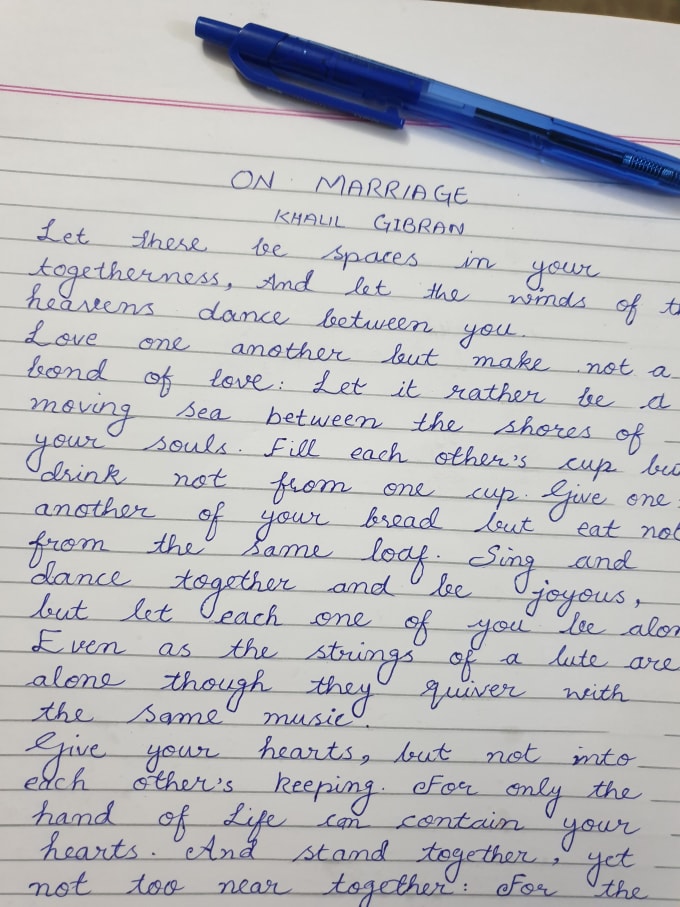 ON MARRIAGE
KHALIL GIBRAN
Let there be spaces in your
togetherness, And let the winds of
heavens dance between you.
Love one another but make not a
bond of love: Let it rather be a
moving sea between the shores of
your souls. Fill each other's cup
drink not from one cup. Give one
another of your bread but eat not
from the same loaf. Sing and
dance together and be joyous,
but let each one of you be
Even as the strings of a lute are
alone though they quiver with
the same music.
Give your hearts, but not into
each other's keeping. For only the
hand of Life can contain your
hearts. And stand together, yet
not too near together: For the